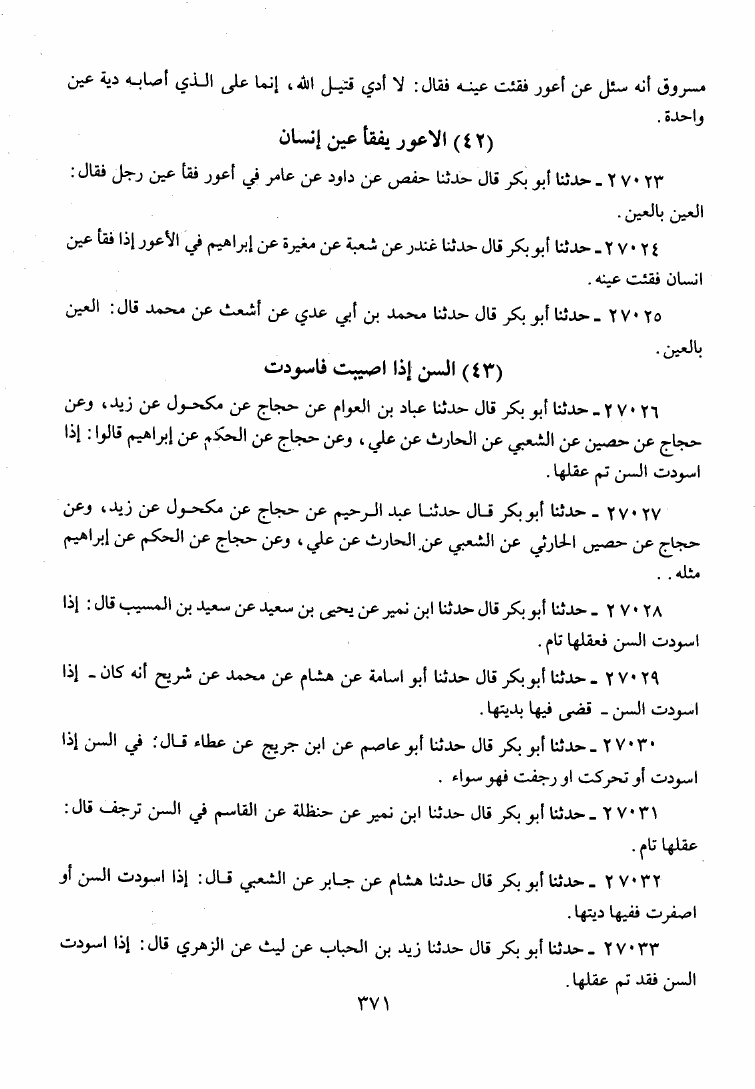 مسروق أنه سئل عن أعور فقئت عينه فقال: لا أدي قتيل الله، إنما على الذي أصابه دية عين
واحدة.
(٤٢) الاعور يفقأ عين إنسان
٢٧٠٢٣ - حدثنا أبو بكر قال حدثنا حفص عن داود عن عامر في أعور فقأ عين رجل فقال:
العين بالعين.
٢٧٠٢٤ - حدثنا أبو بكر قال حدثنا غندر عن شعبة عن مغيرة عن إبراهيم في الأعور إذا فقأ عين
انسان فقئت عينه.
٢٧٠٢٥ - حدثنا أبو بكر قال حدثنا محمد بن أبي عدي عن أشعث عن محمد قال: العين
بالعين.
(٤٣) السن إذا اصيبت فاسودت
٢٧٠٢٦ - حدثنا أبو بكر قال حدثنا عباد بن العوام عن حجاج عن مكحول عن زيد، وعن
حجاج عن حصين عن الشعبي عن الحارث عن علي، وعن حجاج عن الحكم عن إبراهيم قالوا: إذا
اسودت السن تم عقلها.
٢٧٠٢٧ - حدثنا أبو بكر قال حدثنا عبد الرحيم عن حجاج عن مكحول عن زيد، وعن
حجاج عن حصين الحارثي عن الشعبي عن الحارث عن علي، وعن حجاج عن الحكم عن إبراهيم
مثله . .
٢٧٠٢٨ - حدثنا أبو بكر قال حدثنا ابن نمير عن يحيى بن سعيد عن سعيد بن المسيب قال: إذا
اسودت السن فعقلها تام.
٢٧٠٢٩ - حدثنا أبو بكر قال حدثنا أبو اسامة عن هشام عن محمد عن شريح أنه كان - إذا
اسودت السن - قضى فيها بديتها.
٢٧٠٣٠ - حدثنا أبو بكر قال حدثنا أبو عاصم عن ابن جريج عن عطاء قال: في السن إذا
اسودت أو تحركت او رجفت فهو سواء .
٢٧٠٣١ - حدثنا أبو بكر قال حدثنا ابن نمير عن حنظلة عن القاسم في السن ترجف قال:
عقلها تام.
٢٧٠٣٢ - حدثنا أبو بكر قال حدثنا هشام عن جابر عن الشعبي قال: إذا اسودت السن أو
اصفرت ففيها ديتها.
٢٧٠٣٣ - حدثنا أبو بكر قال حدثنا زيد بن الحباب عن ليث عن الزهري قال: إذا اسودت
السن فقد تم عقلها.
٣٧١